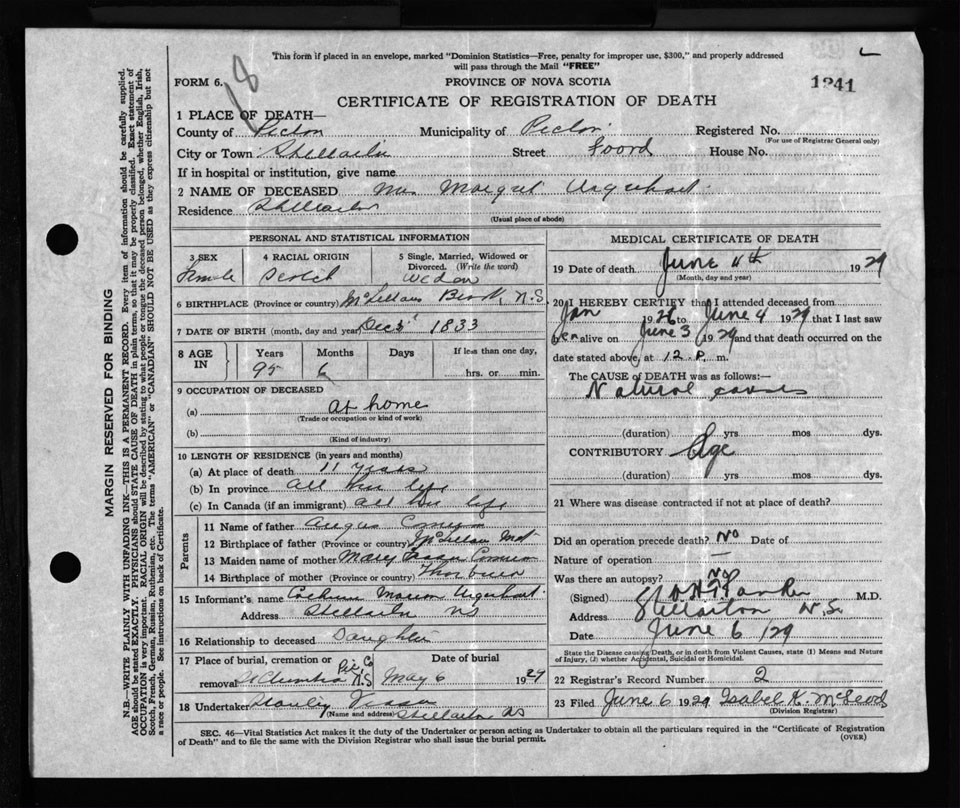 This form if placed in an envelope, marked "Dominion Statistics—Free, penalty for improper use, $300," and properly addressed
will pass through the Mail "FREE"
18
FORM 6.
PROVINCE OF NOVA SCOTIA
1241
CERTIFICATE OF REGISTRATION OF DEATH
1 PLACE OF DEATH—
County of Pictou Municipality of Pictou Registered No.
(For use of Registrar General only)
City or Town Stellarton Street Foord House No.
If in hospital or institution, give name
2 NAME OF DECEASED Mrs Margret Urquhart
Residence Stellarton
(Usual place of abode)
PERSONAL AND STATISTICAL INFORMATION
3 SEX 4 RACIAL ORIGIN 5 Single, Married, Widowed or
Divorced. (Write the word)
Female Scotch Widow
6 BIRTHPLACE (Province or country) McLellans Brook, N.S.
7 DATE OF BIRTH (month, day and year) Dec 1833
8 AGE IN Years Months Days If less than one day,
95 6 hrs. or min.
9 OCCUPATION OF DECEASED
(a) at home
(Trade or occupation or kind of work)
(b)
(Kind of industry)
10 LENGTH OF RESIDENCE (in years and months)
(a) At place of death 11 years
(b) In province all her life
(c) In Canada (if an immigrant) all her life
Parents
11 Name of father Angus
12 Birthplace of father (Province or country) McLellans
13 Maiden name of mother Mary
14 Birthplace of mother (Province or country) Thorburn
15 Informant's name Marion Urquhart
Address Stellarton NS
16 Relationship to deceased Daughter
17 Place of burial, cremation or Date of burial
removal Pic Co N.S May 6 1929
18 Undertaker Stanley
(Name and address) Stellarton NS
MEDICAL CERTIFICATE OF DEATH
19 Date of death June 4th 1929
(Month, day and year)
20 I HEREBY CERTIFY that I attended deceased from
Jan 1926 to June 4 1929 that I last saw
her alive on June 3 1929 and that death occurred on the
date stated above, at 12 P. m.
The CAUSE of DEATH was as follows:—
Natural causes
(duration) yrs mos dys.
CONTRIBUTORY Age
(duration) yrs mos dys.
21 Where was disease contracted if not at place of death?
Did an operation precede death? No Date of
Nature of operation —
Was there an autopsy? No
(Signed) M.D.
Address Stellarton N.S.
Date June 6/29
State the Disease causing Death, or in death from Violent Causes, state (1) Means and Nature
of Injury, (2) whether Accidental, Suicidal or Homicidal.
22 Registrar's Record Number 2
23 Filed June 6 1929 Isabel K. McLeod
(Division Registrar)
SEC. 46—Vital Statistics Act makes it the duty of the Undertaker or person acting as Undertaker to obtain all the particulars required in the "Certificate of Registration
of Death" and to file the same with the Division Registrar who shall issue the burial permit.
(OVER)
MARGIN RESERVED FOR BINDING
N.B.—WRITE PLAINLY WITH UNFADING INK—THIS IS A PERMANENT RECORD. Every item of information should be carefully supplied.
AGE should be stated EXACTLY. PHYSICIANS should STATE CAUSE OF DEATH in plain terms, so that it may be properly classified. Exact statement of
OCCUPATION is very important. RACIAL ORIGIN will be described by stating to what people or tongue the deceased person belonged, whether English, Irish,
Scotch, French, German, Russian, Ruthenian, etc. The terms "AMERICAN" or "CANADIAN" SHOULD NOT BE USED as they express citizenship but not
a race or people. See instructions on back of Certificate.